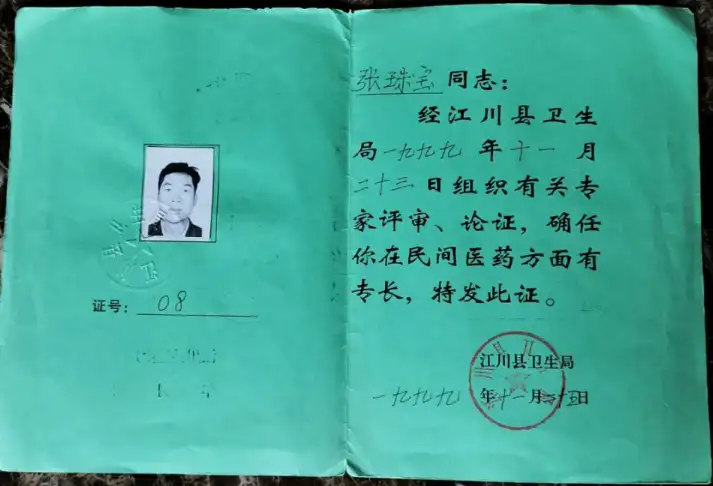 证号：08
张珠宝 同志：
经江川县卫生
局一九九九年十一月
二十三日组织有关专
家评审、论证，确任
你在民间医药方面有
专长，特发此证。
江川县卫生局
一九九九年十一月二十五日